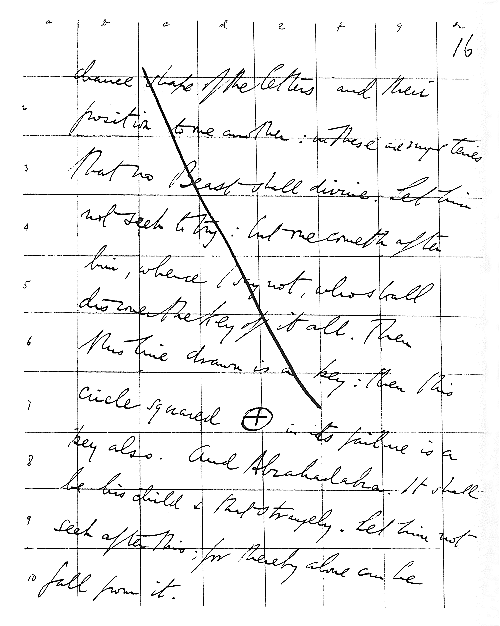 a b c d e f g h
16
chance shape of the letters and their
2 position to one another: in these are mysteries
3 that no Beast shall divine. Let him
4 not seek to try: but one cometh after
him, whence I say not, who shall
5 discover the key of it all. Then
6 this line drawn is a key: then this
7 circle squared in its failure is a
key also. And Abrahadabra. It shall
8 be his child & that strangely. Let him not
9 seek after this; for thereby alone can he
10 fall from it.